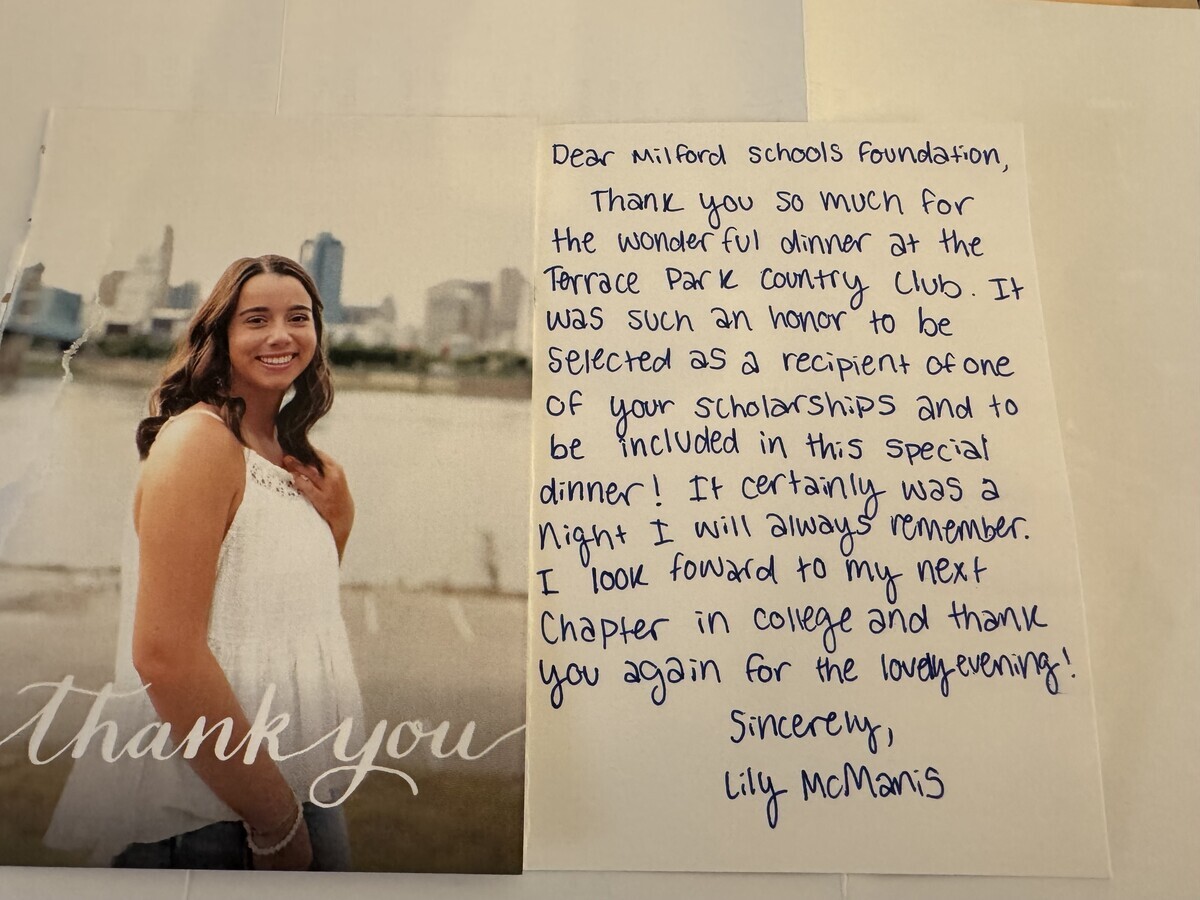 thank you
Dear Milford Schools Foundation,
Thank you so much for
the wonderful dinner at the
Terrace Park Country Club. It
was such an honor to be
selected as a recipient of one
of your scholarships and to
be included in this special
dinner! It certainly was a
night I will always remember.
I look foward to my next
chapter in college and thank
you again for the lovely evening!
Sincerely,
Lily McManis